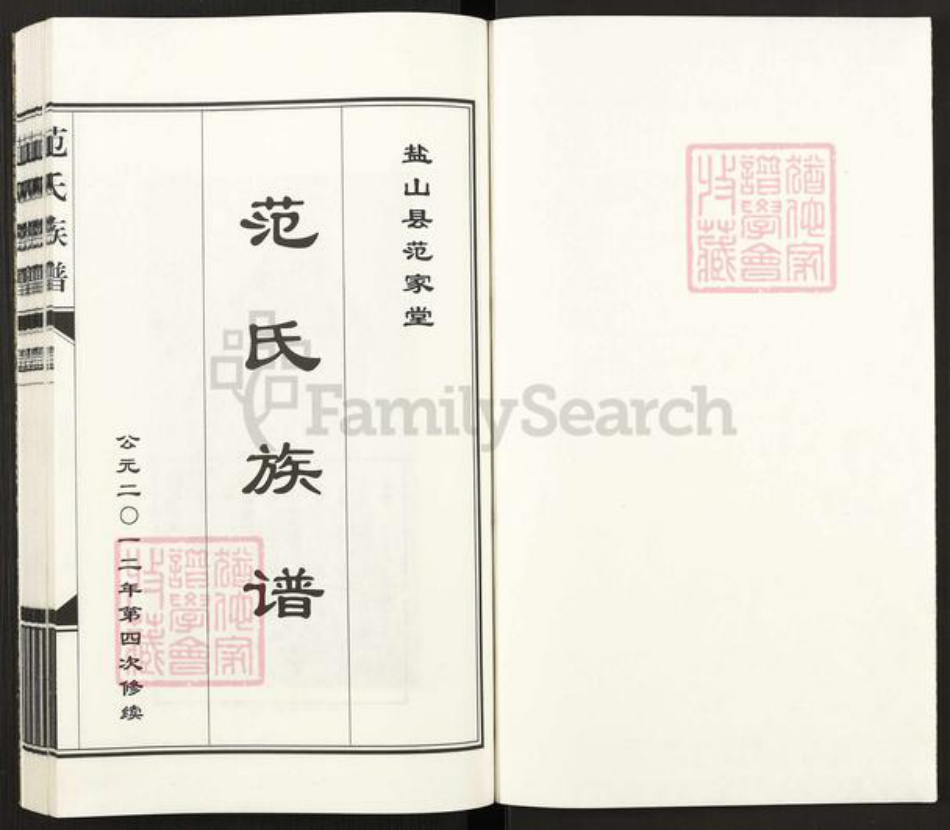 盐山县范家堂
范氏族谱
公元二〇一二年第四次修续
范氏族谱
猶他家
譜學會
收藏
猶他家
譜學會
收藏
FamilySearch